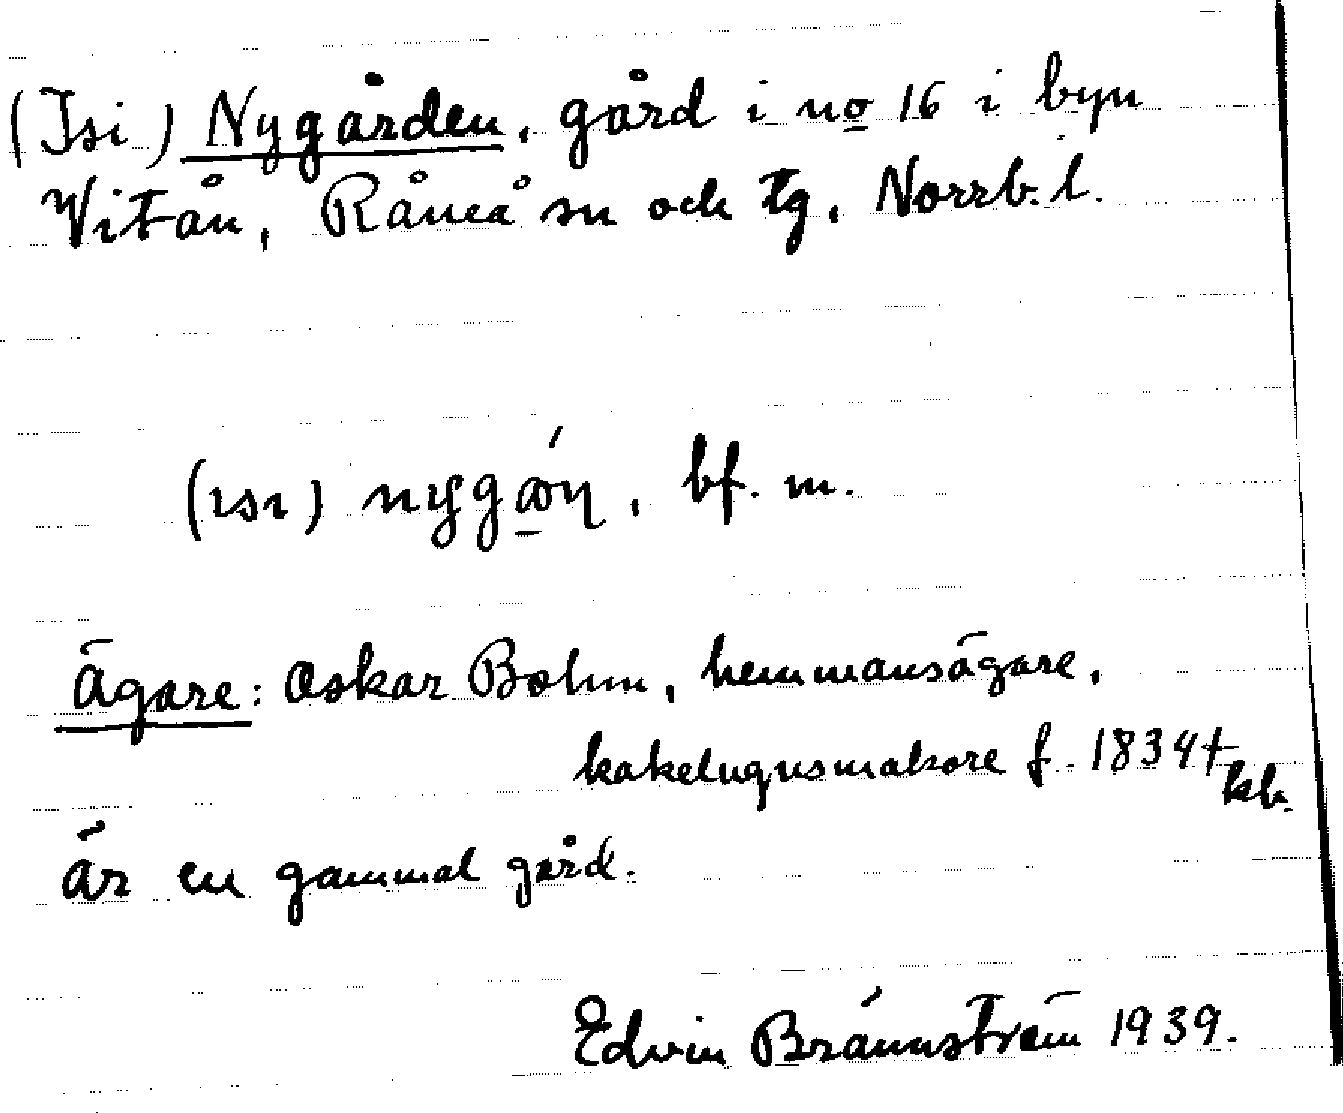 (Isi) Nygården, gård i no 16 i byn
Vitån, Råneå sn och tg, Norrb. l.
(ısı)            , bf. m.
Ägare: Oskar Bohm, hemmansägare,
kakelugnsmakare f. 1834 † kb.
Är en gammal gård.
Edvin Brännström 1939.